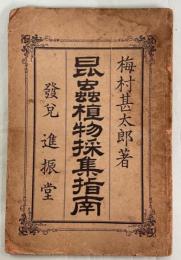 梅村甚太郎著
昆蟲植物採集指南
發兌 進振堂